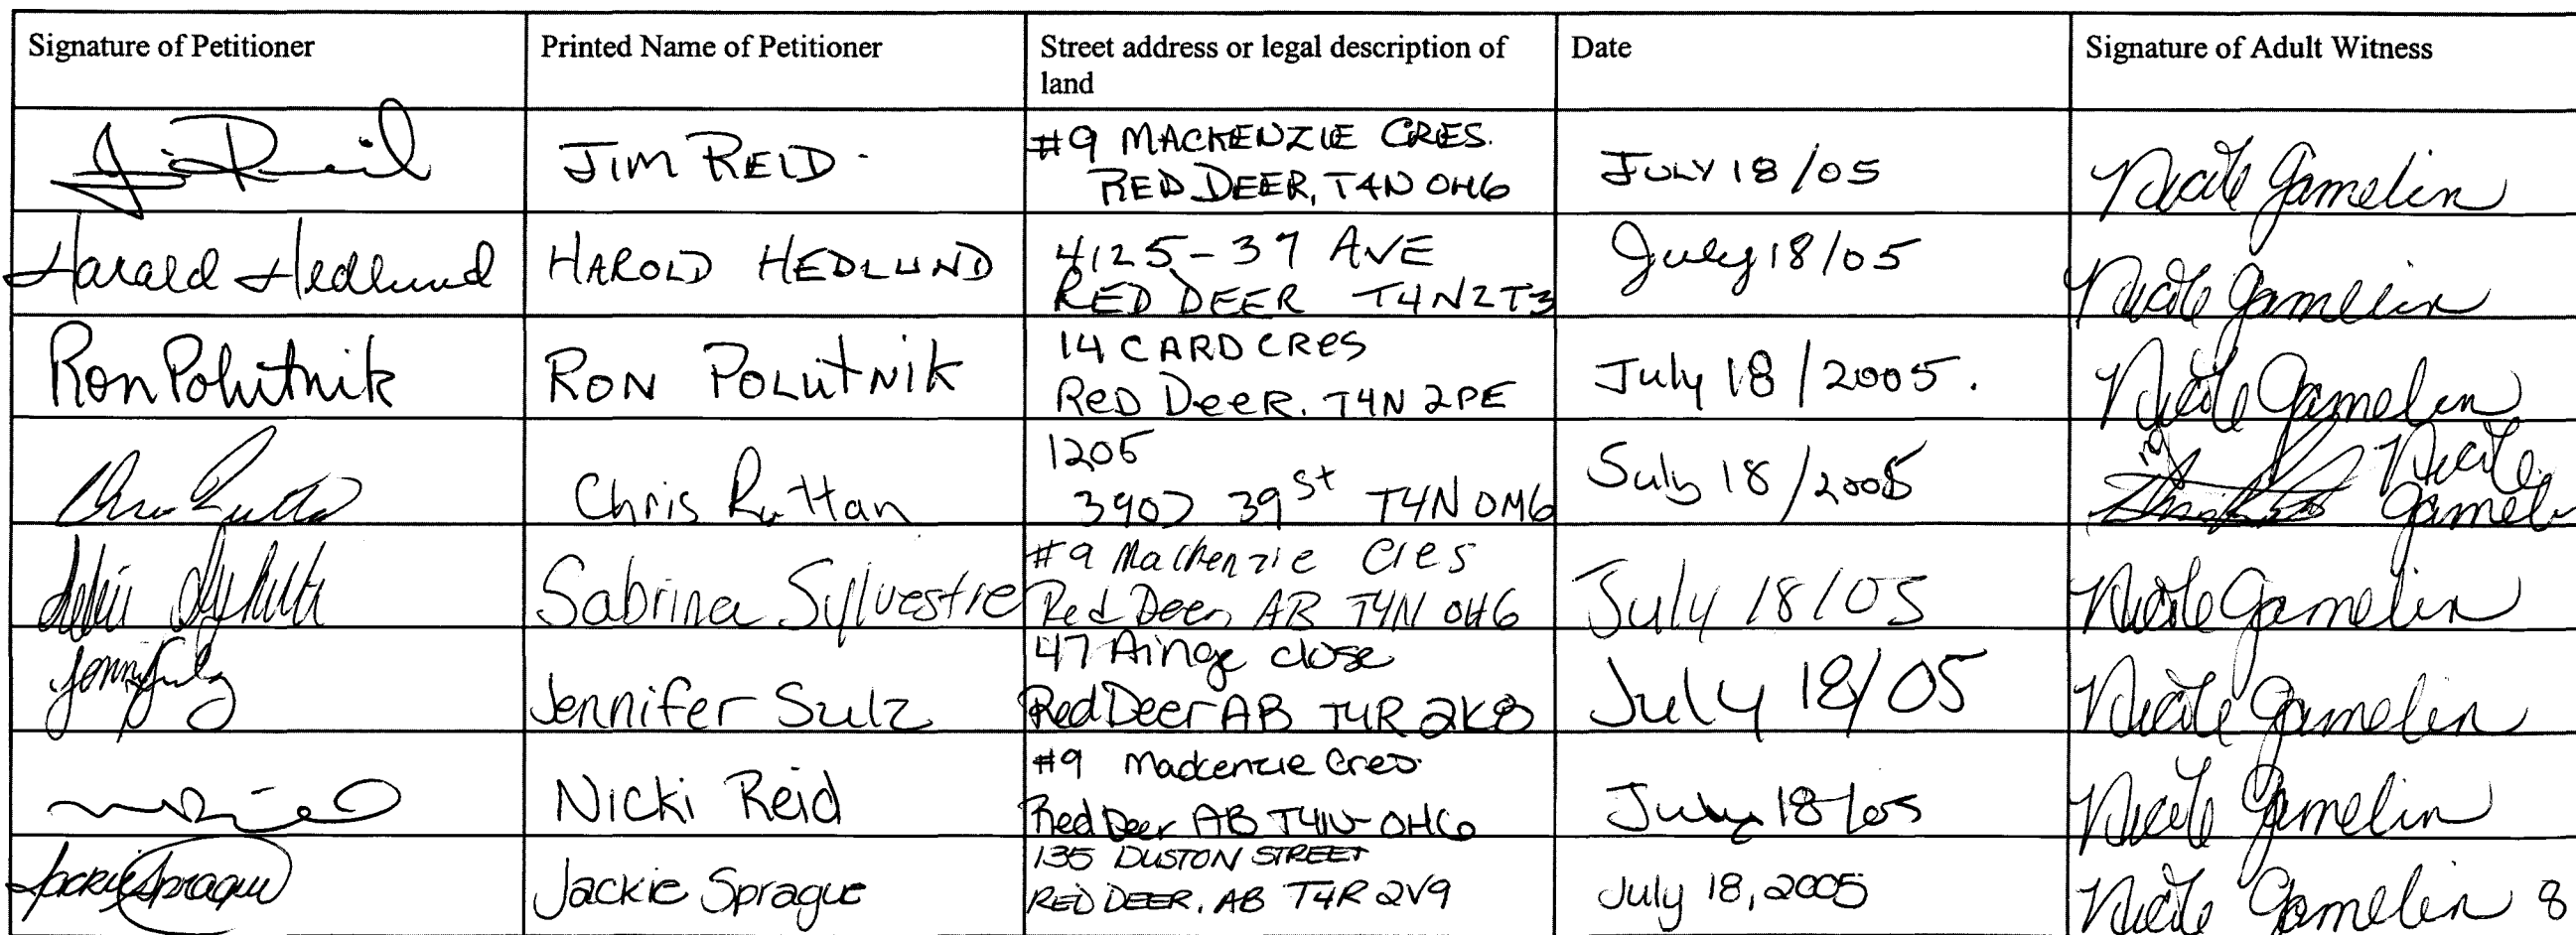 Signature of Petitioner
Printed Name of Petitioner
Street address or legal description of
land
Date
Signature of Adult Witness
JIM REID
#9 MACKENZIE CRES.
RED DEER, T4N 0H6
JULY 18/05
Nicole Gamelin
Harald Hedlund
HAROLD HEDLUND
4125-37 AVE
RED DEER T4N2T3
July 18/05
Nicole Gamelin
Ron Polutnik
RON POLUTNIK
14 CARD CRES
RED DEER. T4N 2PE
July 18/2005.
Nicole Gamelin
Chris Ruttan
1205
3907 39 St T4N 0M6
July 18/2005
Nicole
Gamelin
Sabrina Sylvestre
#9 Mackenzie Cres
Red Deer, AB T4N 0H6
July 18/05
Nicole Gamelin
Jennifer Sulz
47 Ainge close
Red Deer AB T4R 2K8
July 18/05
Nicole Gamelin
Nicki Reid
#9 Mackenzie Cres.
Red Deer AB T4N-0H6
July 18/05
Nicole Gamelin
Jackie Sprague
Jackie Sprague
135 DUSTON STREET
RED DEER, AB T4R 2V9
July 18, 2005
Nicole Gamelin 8